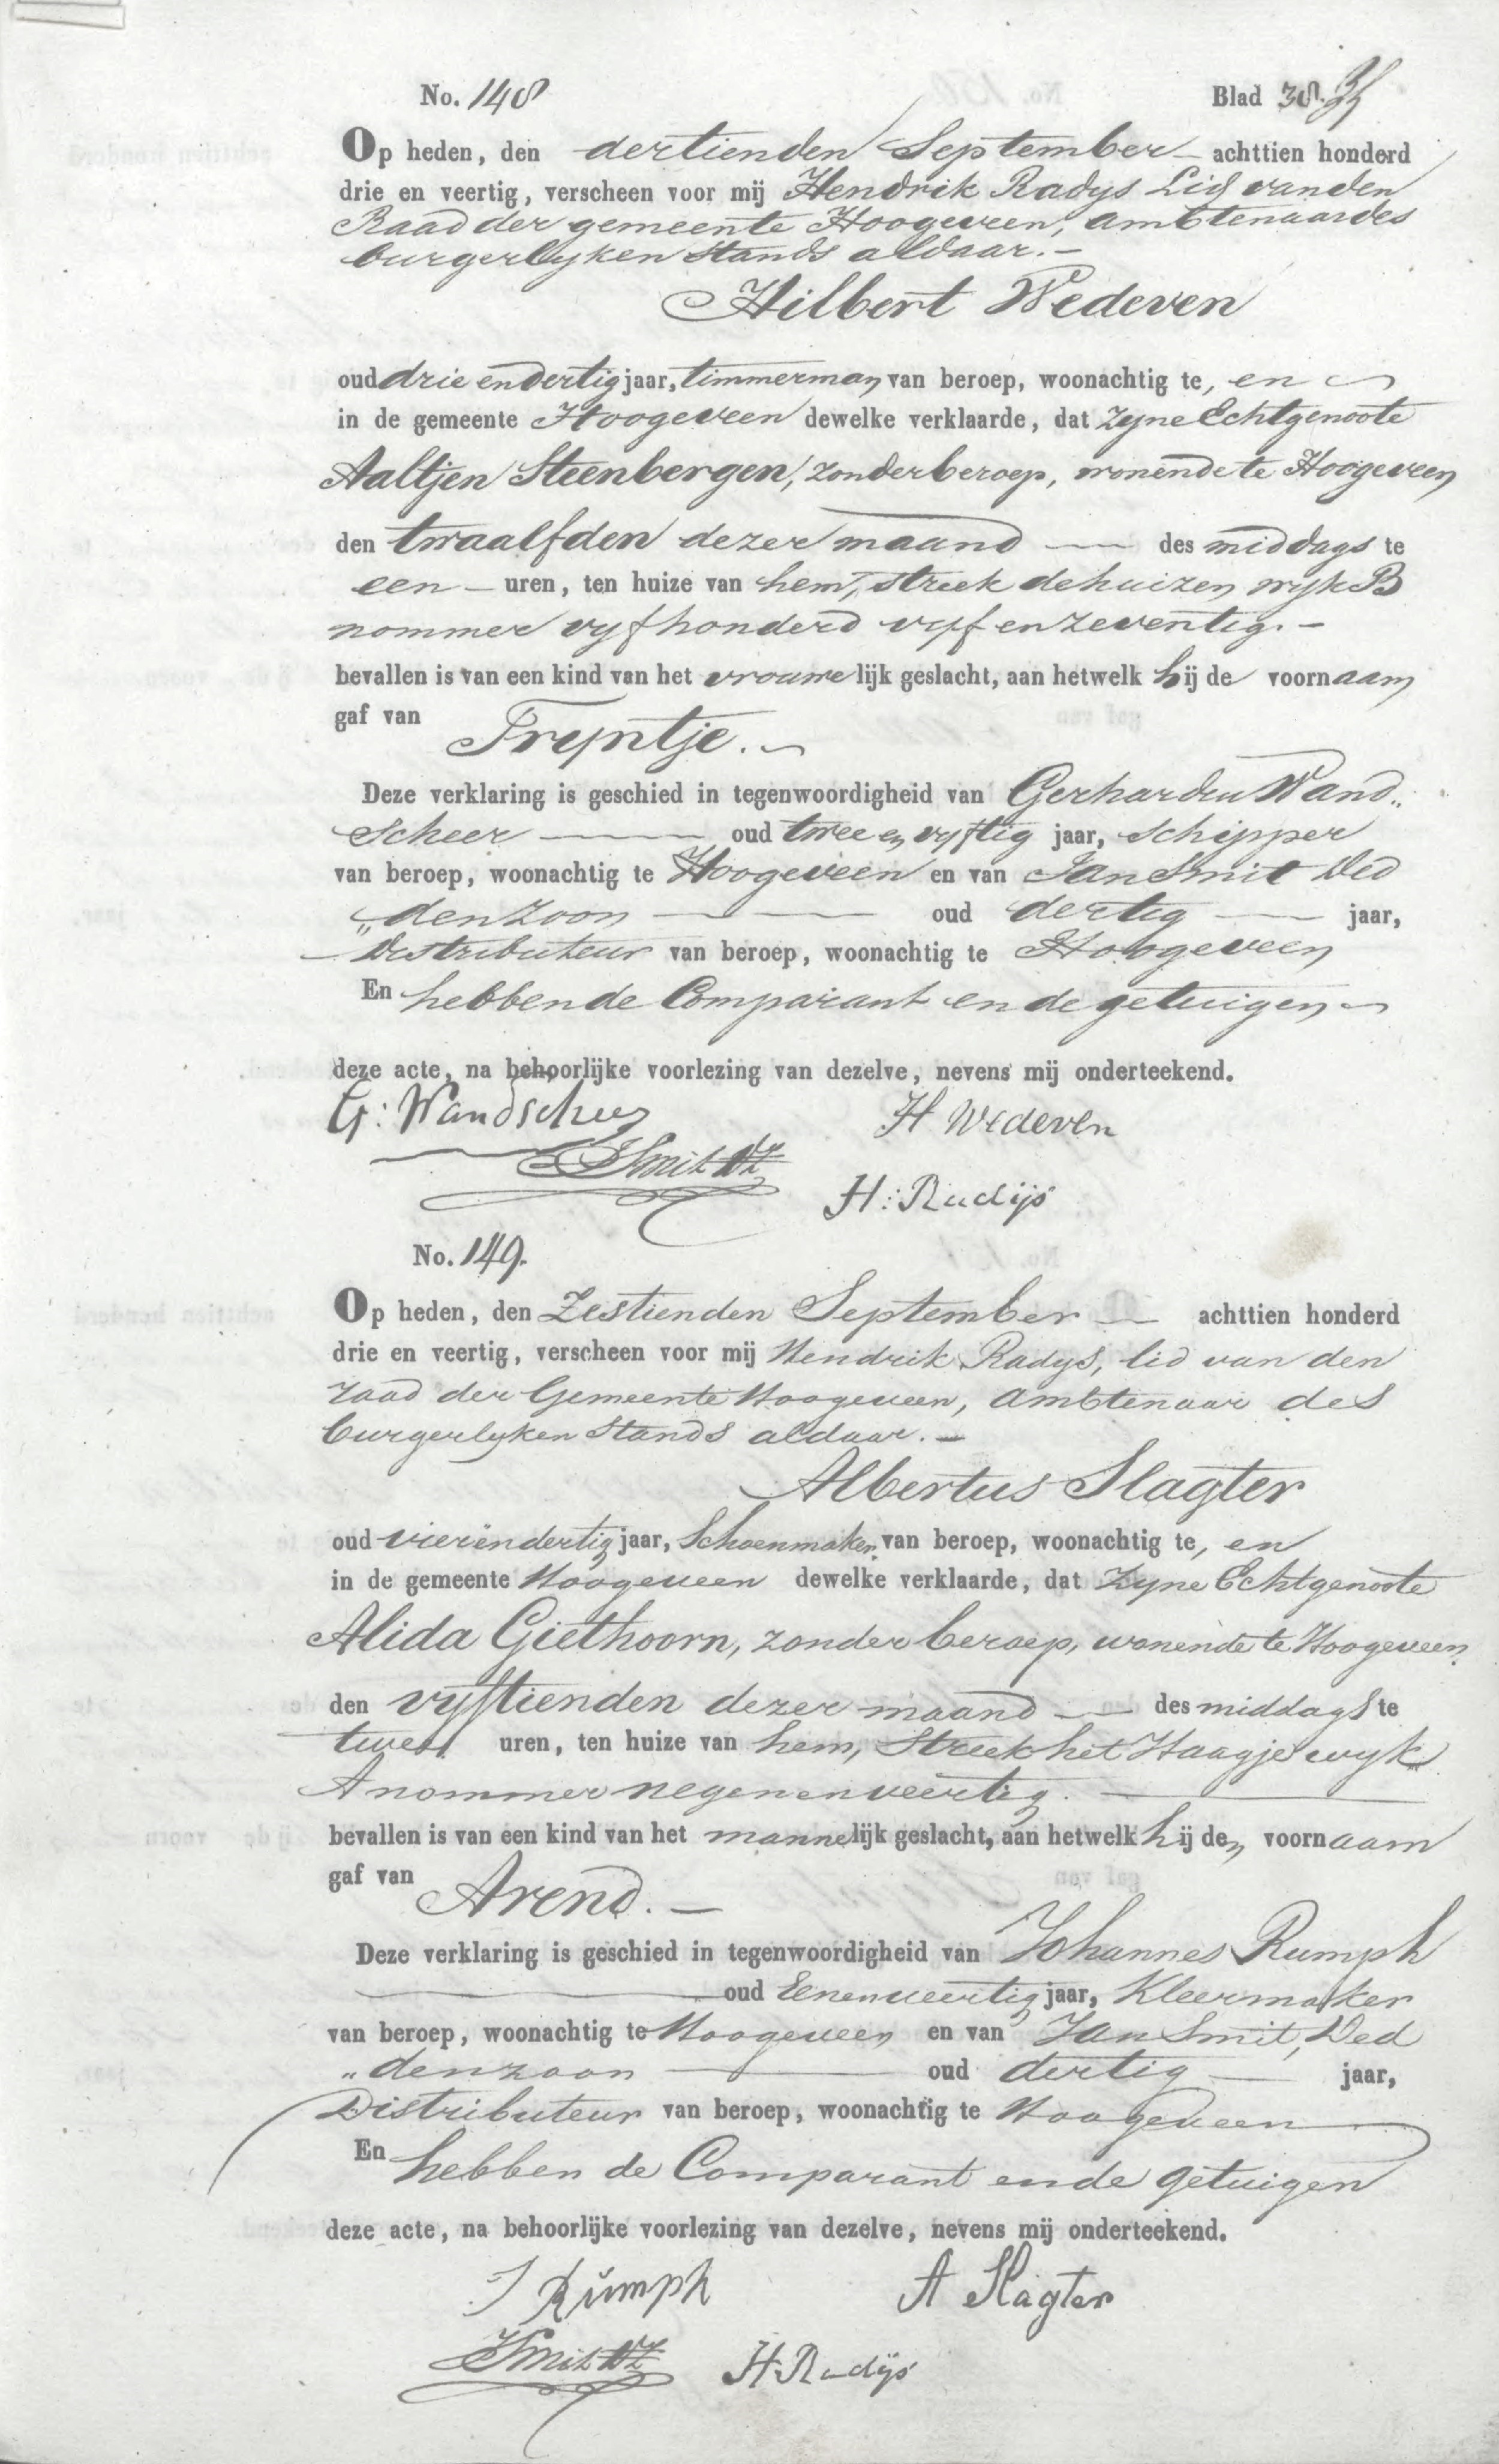 No. 148 Blad 38.
Op heden, den dertienden September achttien honderd
drie en veertig, verscheen voor mij Hendrik Radys Lid van den
Raad der gemeente Hoogeveen, ambtenaar des
burgerlyken stands aldaar.
Hilbert Wedeven
oud drie en dertig jaar, timmerman van beroep, woonachtig te, en
in de gemeente Hoogeveen dewelke verklaarde, dat zyne Echtgenoote
Aaltjen Steenbergen, zonder beroep, wonende te Hoogeveen
den twaalfden dezer maand des middags te
een uren, ten huize van hem, streek de huizen wyk B
nommer vyfhonderd vyf en zeventig.
bevallen is van een kind van het vrouwelijk geslacht, aan hetwelk hij de voornaam
gaf van Tryntje.
Deze verklaring is geschied in tegenwoordigheid van Gerhardus Wand„
scheer oud twee en vyftig jaar, Schipper
van beroep, woonachtig te Hoogeveen en van Jan Smit Wed
„denzoon oud dertig jaar,
Distributeur van beroep, woonachtig te Hoogeveen
En hebben de Comparant en de getuigen
deze acte, na behoorlijke voorlezing van dezelve, nevens mij onderteekend.
G: Wandscheer H Wedeven
JSmit WZ
H: Radijs
No. 149.
Op heden, den Zestienden September achttien honderd
drie en veertig, verscheen voor mij Hendrik Radys, lid van den
raad der Gemeente Hoogeveen, ambtenaar des
burgerlyken Stands aldaar.
Albertus Slagter
oud vierëndertig jaar, Schoenmaker van beroep, woonachtig te, en
in de gemeente Hoogeveen dewelke verklaarde, dat Zyne Echtgenoote
Alida Giethoorn, zonder beroep, wonende te Hoogeveen
den vyftienden dezer maand des middags te
twee uren, ten huize van hem, Streek het Haagje wyk
A nommer negenenveertig.
bevallen is van een kind van het mannelijk geslacht, aan hetwelk hij den voornaam
gaf van Arend.
Deze verklaring is geschied in tegenwoordigheid van Johannes Rumph
oud Eenenveertig jaar, Kleermaker
van beroep, woonachtig te Hoogeveen en van Jan Smit, Wed
„denzoon oud dertig jaar,
Distributeur van beroep, woonachtig te Hoogeveen
En hebben de Comparant en de getuigen
deze acte, na behoorlijke voorlezing van dezelve, nevens mij onderteekend.
J Rumph A Slagter
JSmit WZ H. Radijs